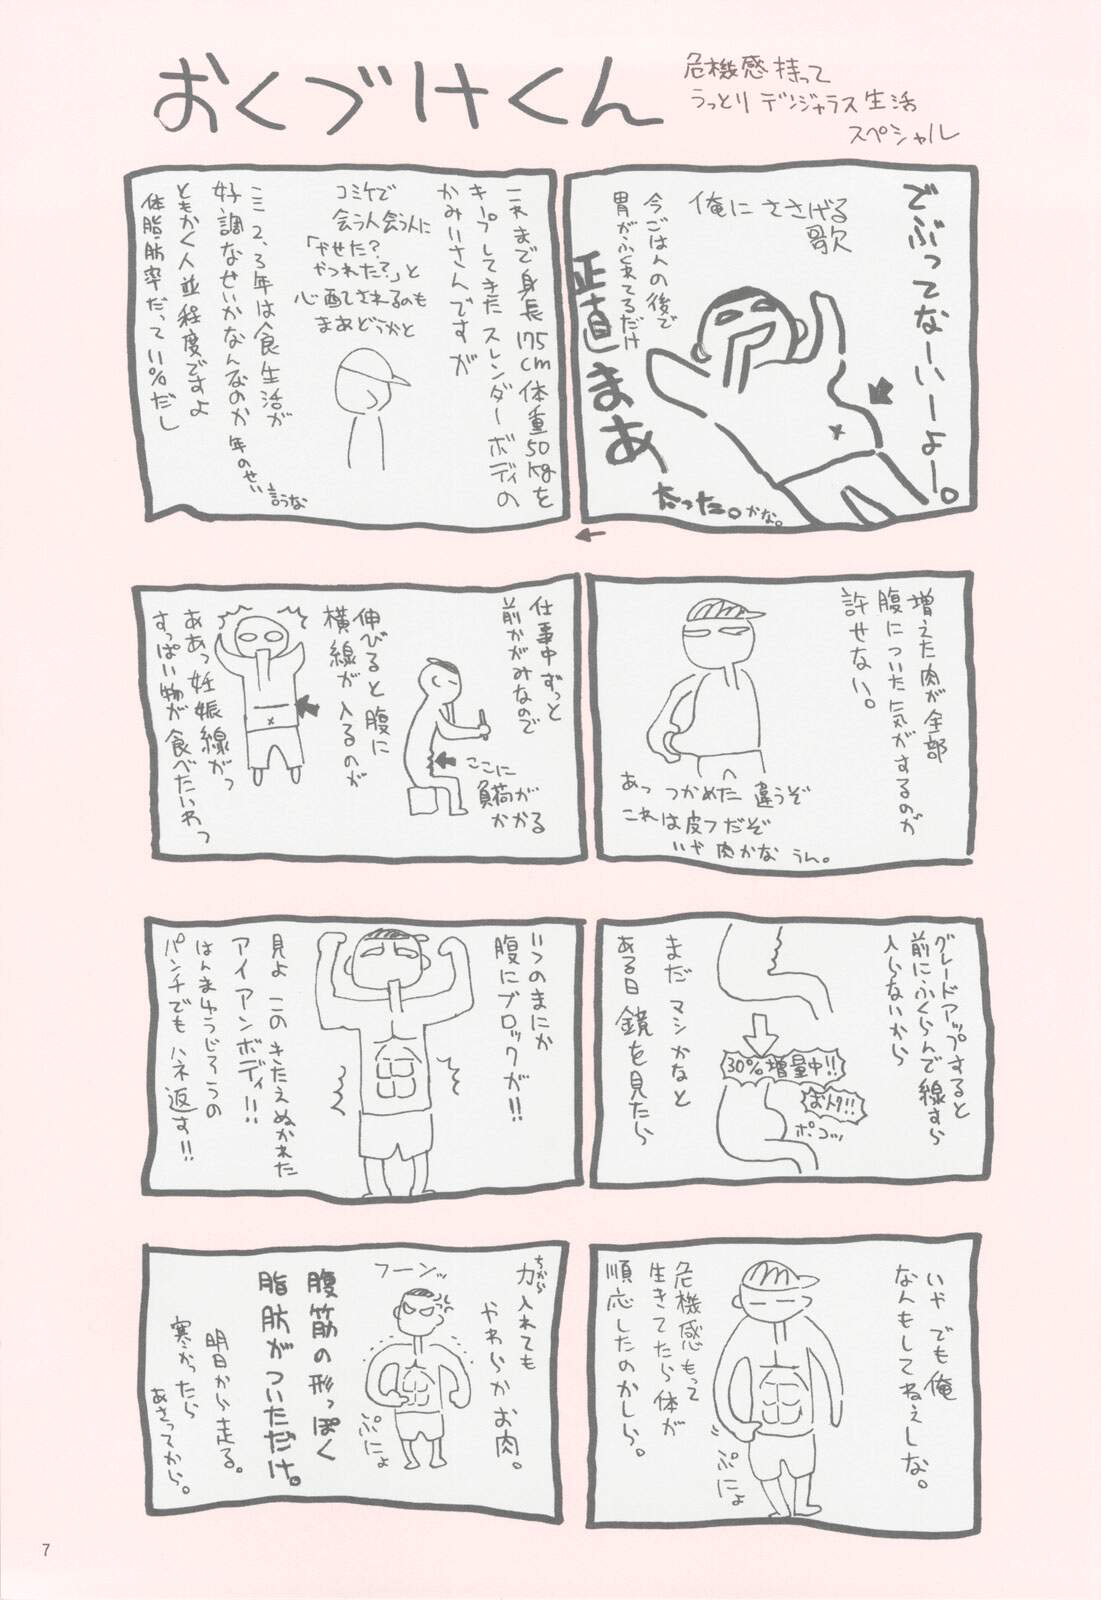 おくづけくん
危機感持って
うっとりデンジャラス生活
スペシャル
でぶってなーいーよー。
俺にささげる
歌
今ごはんの後で
胃がふくれてるだけ
正直まあ
太った。かな。
これまで身長175cm体重50kgを
キープしてきたスレンダーボディの
かみいさんですが
コミケで
会う人会う人に
「やせた?
やつれた?」と
心配されるのも
まあどうかと
ここ2、3年は食生活が
好調なせいかなんなのか年のせい
言うな
ともかく人並程度ですよ
体脂肪率だって11%だし
増えた肉が全部
腹についた気がするのが
許せない。
あっ つかめた 違うぞ
これは皮フだぞ
いや 肉かな うん。
仕事中ずっと
前かがみなので
ここに
負荷が
かかる
伸びると腹に
横線が入るのが
ああっ妊娠線がっ
すっぱい物が食べたいわっ
グレードアップすると
前にふくらんで線すら
入らないから
30%増量中!!
おトク!!
ポコッ
まだマシかなと
ある日鏡を見たら
いつのまにか
腹にブロックが!!
見よ このきたえぬかれた
アイアンボディ!!
はんまゆうじろうの
パンチでもハネ返す!!
いや でも俺
なんもしてねえしな。
ぷにょ
危機感もって
生きてたら体が
順応したのかしら。
ちから
力入れても
やわらかお肉。
フーンッ
ぷにょ
腹筋の形っぽく
脂肪がついただけ。
明日から走る。
寒かったら
あさってから。
7